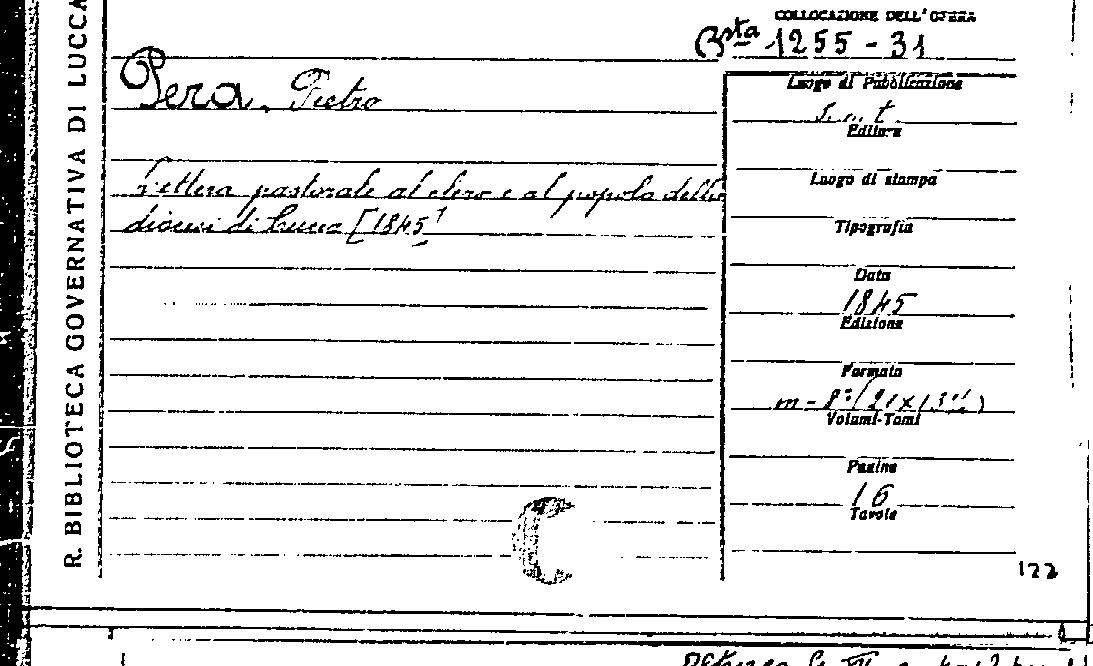 R. BIBLIOTECA GOVERNATIVA DI LUCCA
COLLOCAZIONE DELL'OPERA
Bsta 1255-31
Pera, Pietro
Lettera pastorale al clero e al popolo della
diocesi di Lucca [1845]
Luogo di Pubblicazione
Editore
Luogo di stampa
Tipografia
Data
1845
Edizione
Formato
m-8°(21x13
Volumi-Tomi
Pagine
16
Tavole
C
122